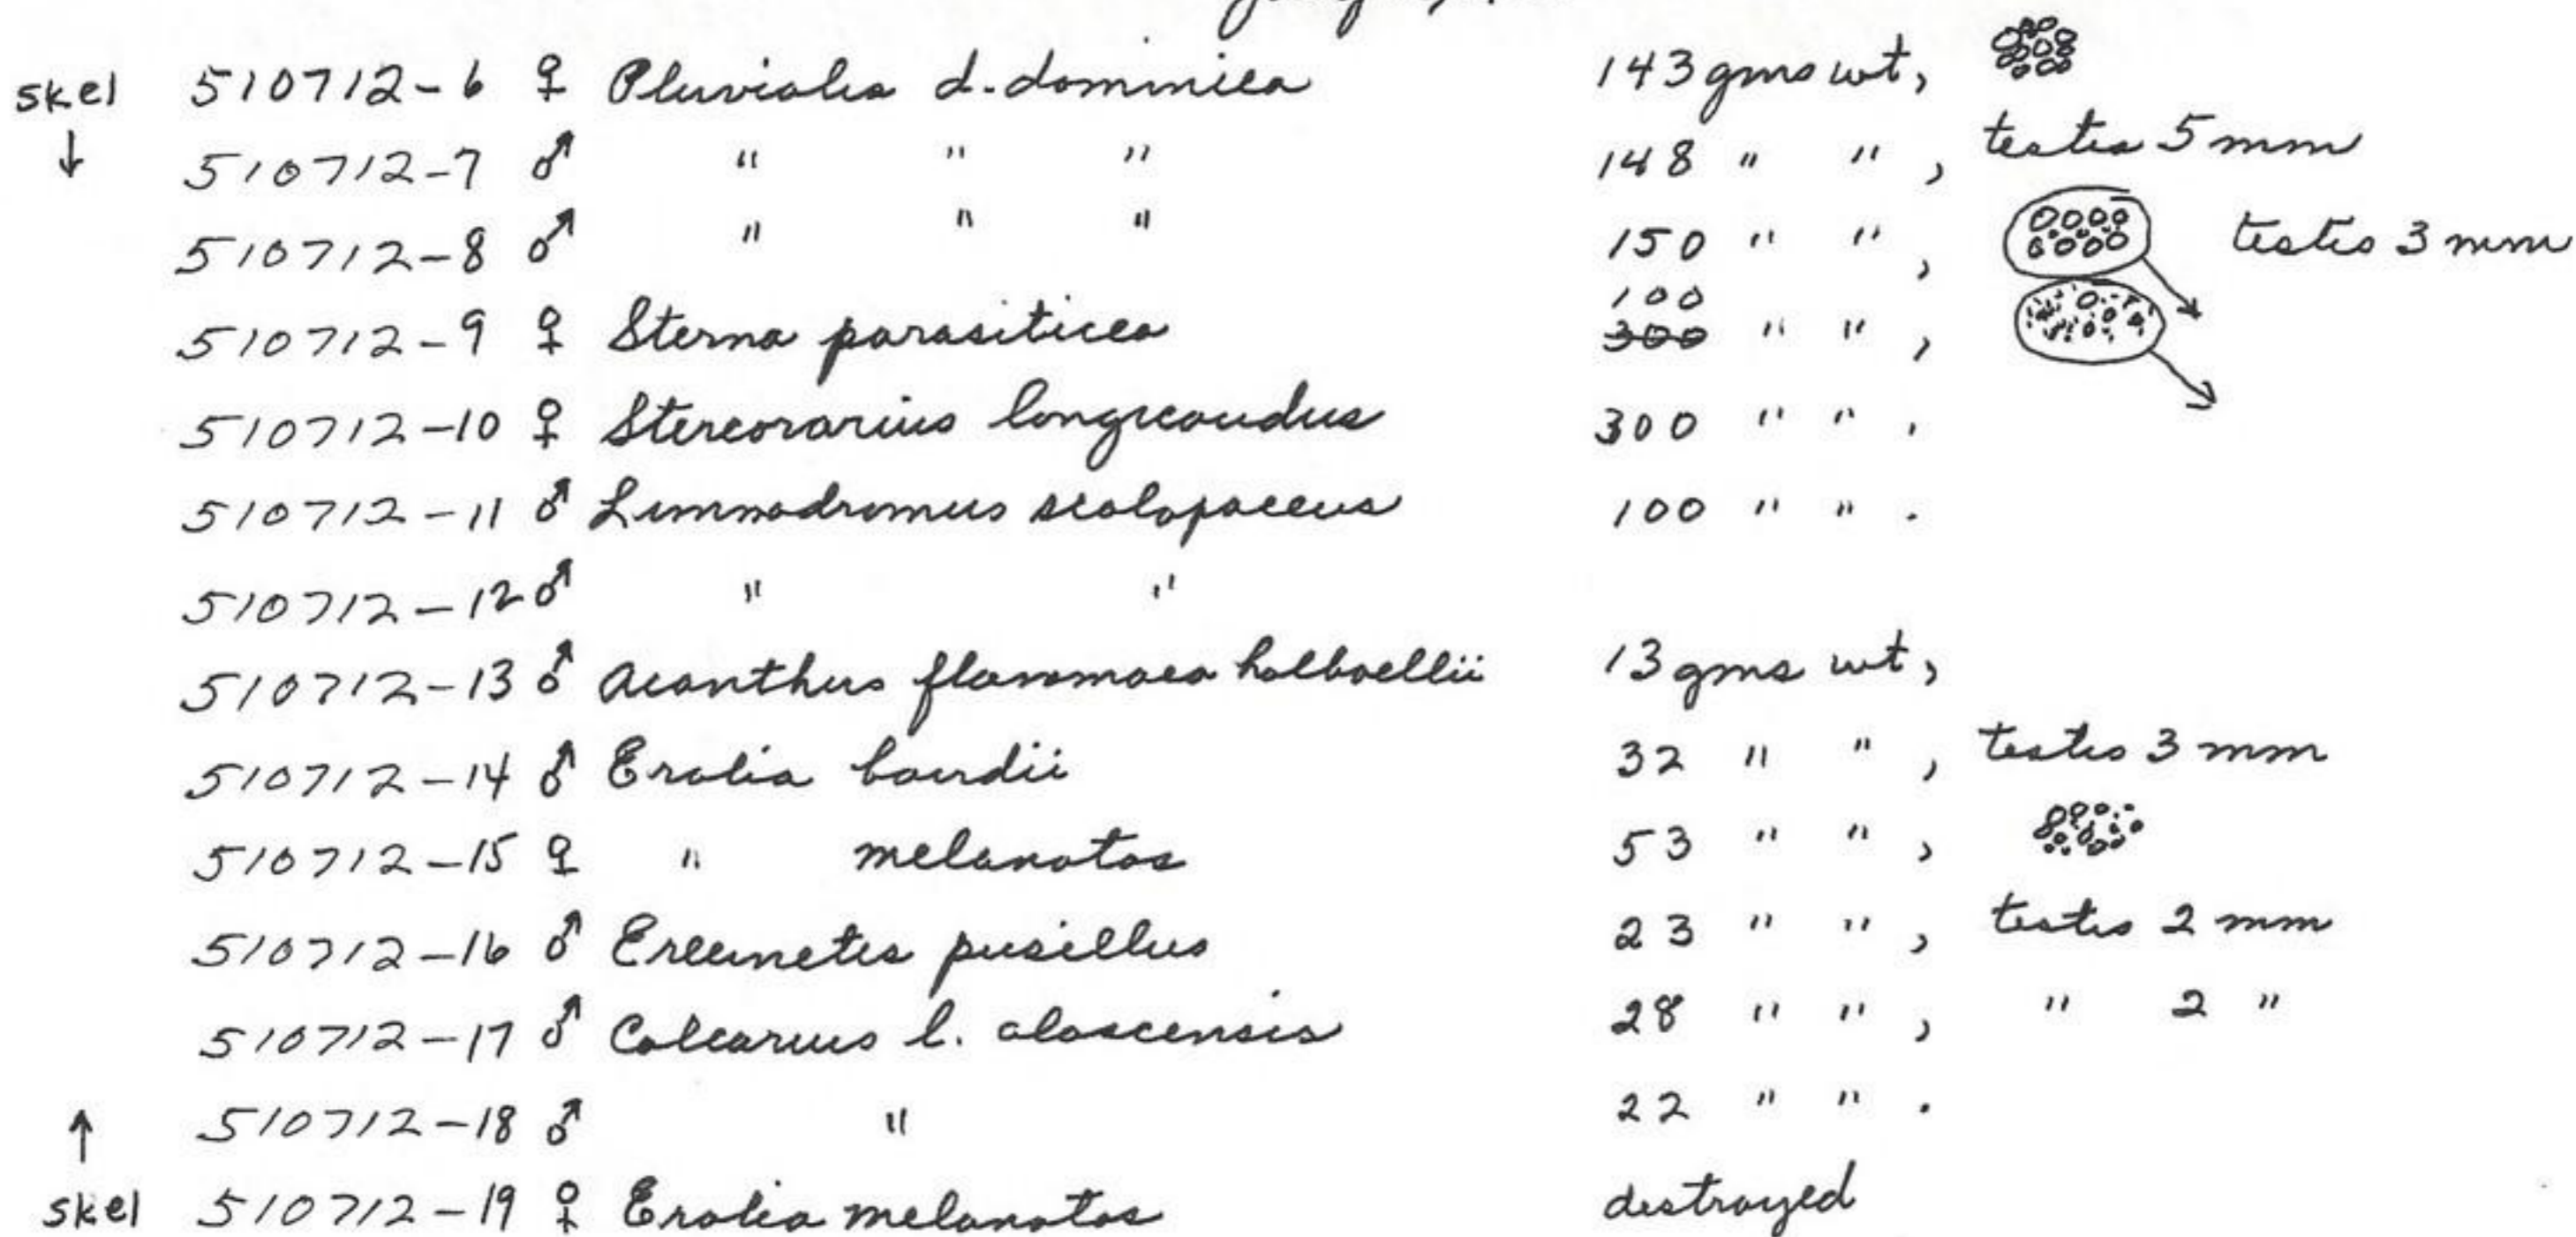 skel 510712-6 ♀ Pluvialis d. dominica 143 gms wt,
↓ 510712-7 ♂ " " " 148 " " , testes 5 mm
510712-8 ♂ " " " 150 " " , testis 3 mm
510712-9 ♀ Sterna parasiticea 100 ~~300~~ " " ,
510712-10 ♀ Stercorarius longicaudus 300 " " .
510712-11 ♂ Limnodromus scolopaceus 100 " " .
510712-12 ♂ " "
510712-13 ♂ Acanthus flammaea holboellii 13 gms wt,
510712-14 ♂ Erolia bairdii 32 " " , testes 3 mm
510712-15 ♀ " melanotos 53 " " ,
510712-16 ♂ Ereunetes pusillus 23 " " , testes 2 mm
510712-17 ♂ Calcarius l. alascensis 28 " " , " 2 "
↑ 510712-18 ♂ " 22 " " .
skel 510712-19 ♀ Erolia melanotos destroyed